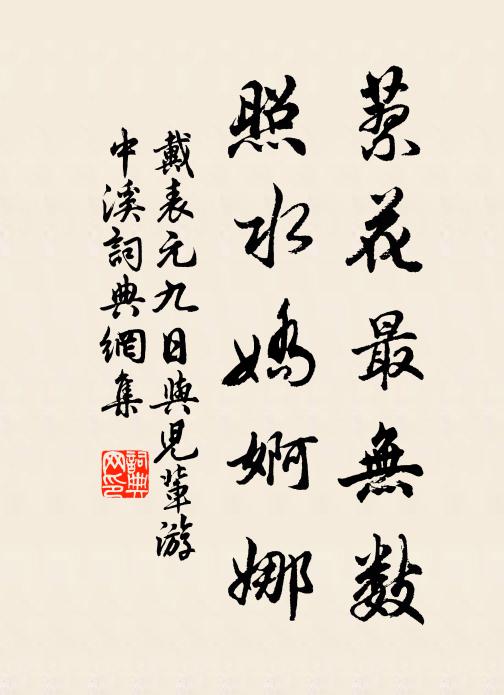 蓼花最無數
照水嬌婀娜
戴表元九日與兒輩游
中溪詞典網集
詞典
网印